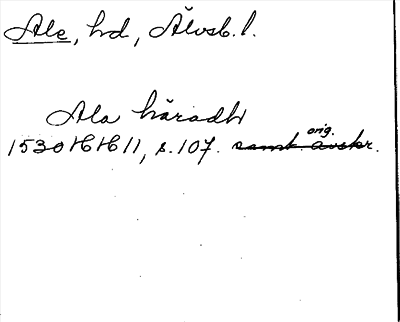 Ale, hd, Älvsb. l.
Ala häradh
1530 HH 11, s. 107. samt. avskr. orig.